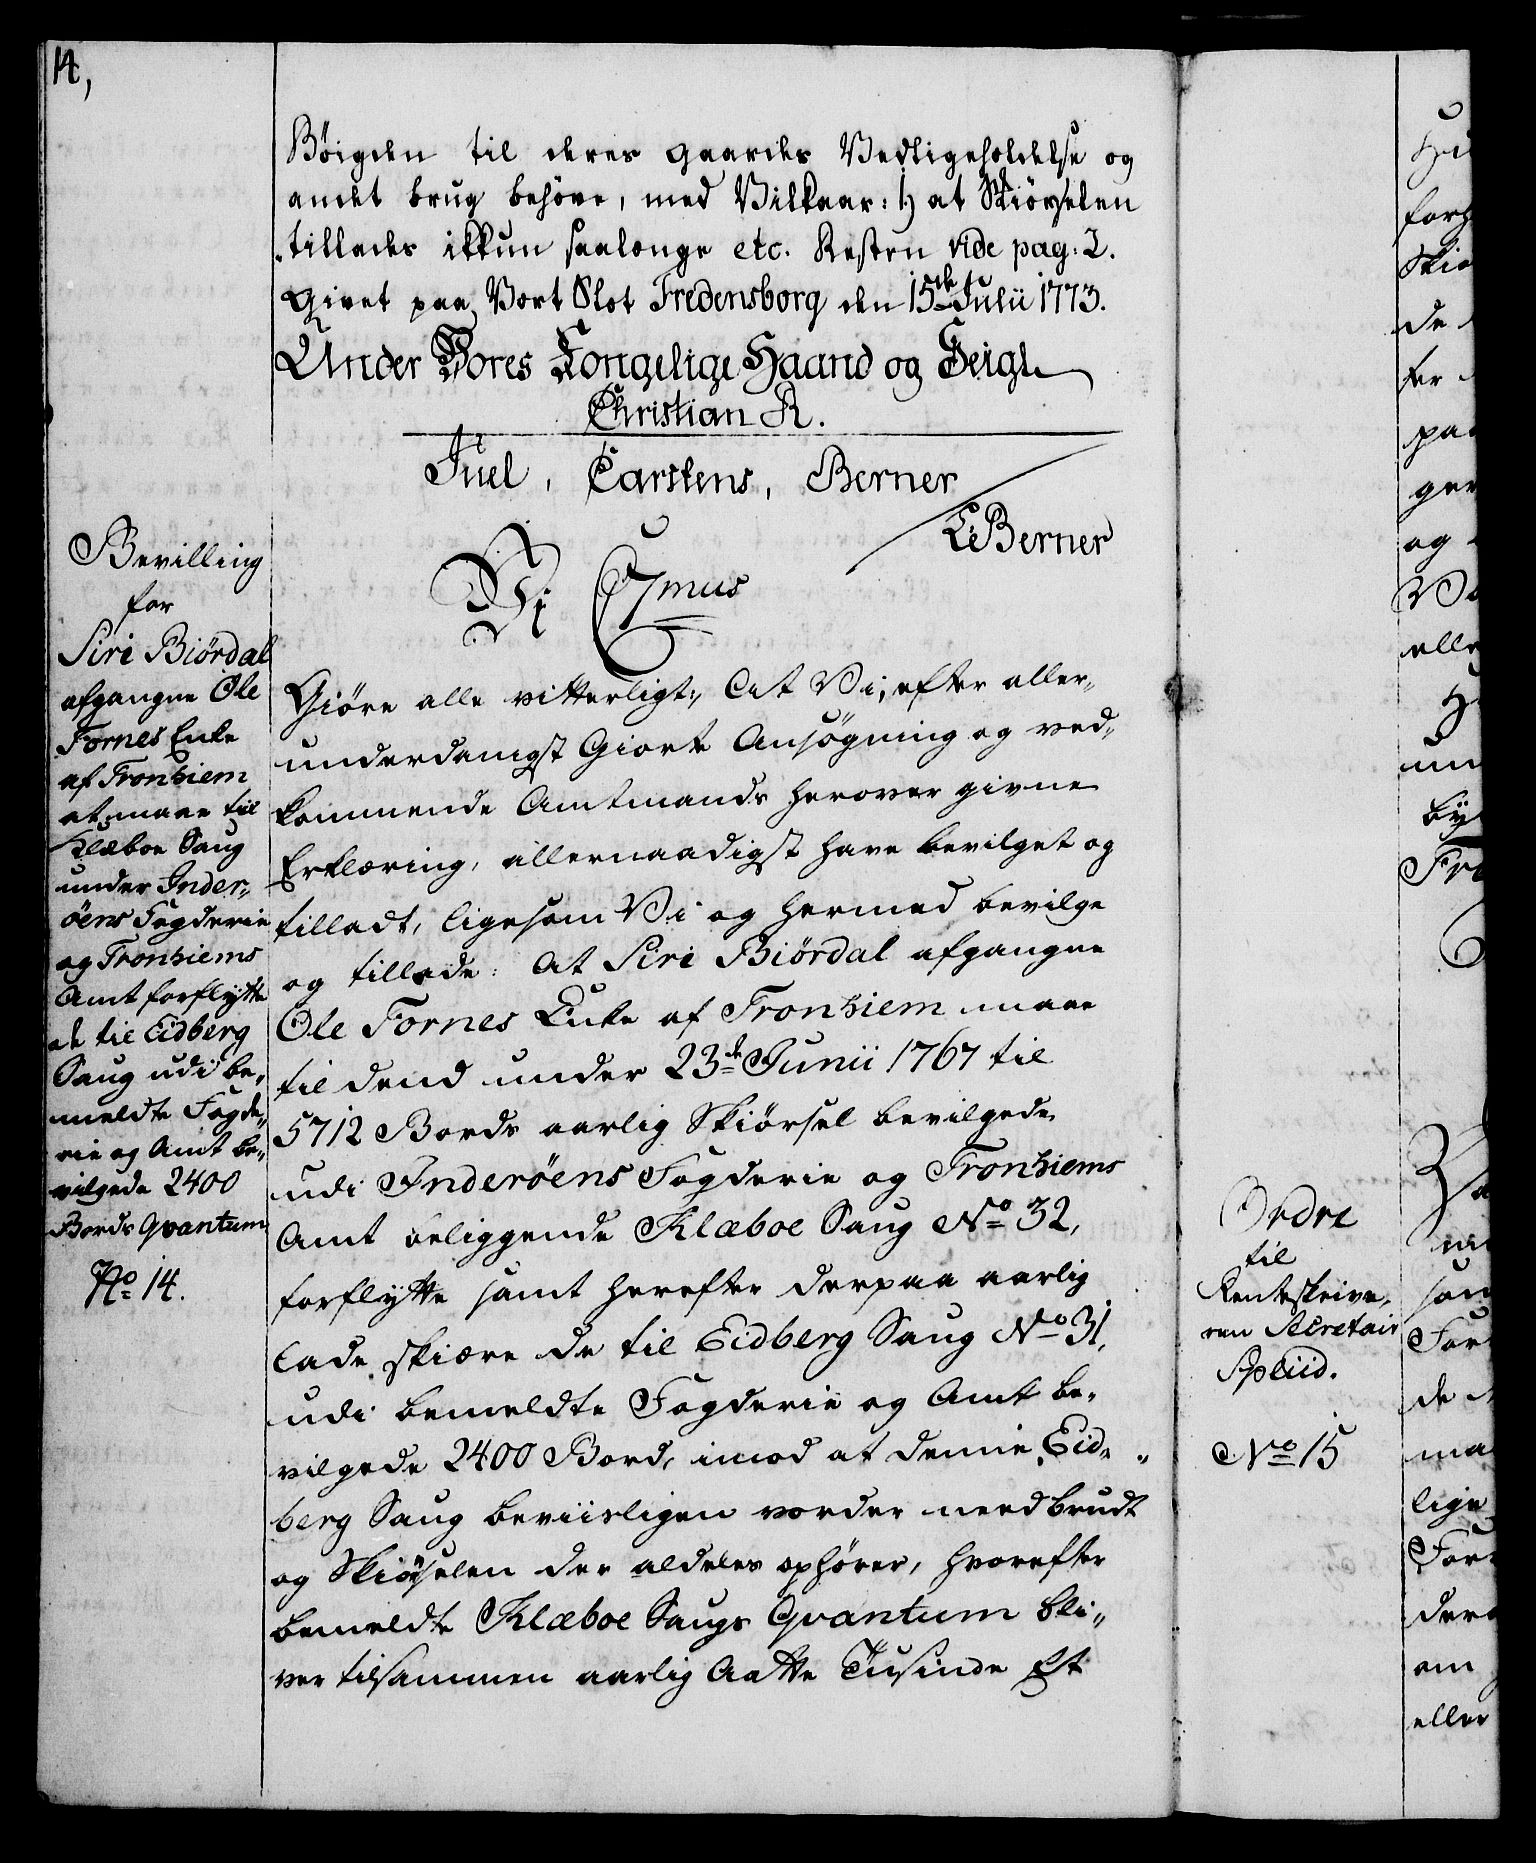 14,
Böigden til deres gaardes Vedligeholdelse og
andet brug behöve, med Vilkaar: 1) at Skiörselen
tillades ikkun saalænge etc. Resten vide pag: 2.
Givet paa Vort Slot Fredensborg den 15de Julii 1773.
Under Vores Kongelige Haand og Seigl
Christian R.
Juel, Carstens, Berner
Berner
Bevilling
for
Siri Biördal
afgangne Ole
Fornes Enke
af Tronhiem
at maae til
Klæboe Saug
under Inder„
öens Fogderie
og Tronhiems
Amt forflytte
de til Eidberg
Saug udi be„
meldte Fogde„
rie og Amt be„
vilgede 2400
Bords Qvantum
No 14.
Vi C 7mus
Giöre alle vitterligt, At Vi, efter aller„
underdanigst Giorte Ansögning og ved„
kommende Amtmands herover givne
Erklæring, allernaadigst have bevilget og
tilladt, ligesom Vi og hermed bevilge
og tillade: At Siri Biördal afgangne
Ole Fornes Enke af Tronhiem maae
til dend under 23de Junii 1767 til
5712 Bords aarlig Skiörsel bevilgede
udi Inderöens Fogderie og Tronhiems
Amt beliggende Klæboe Saug No 32,
forflytte samt herefter derpaa aarlig
lade skiære de til Eidberg Saug No 31,
udi bemeldte Fogderie og Amt be„
vilgede 2400 Bord, imod at denne Eid„
berg Saug beviisligen vorder needbrudt
og Skiörselen der aldeles ophörer, hvorefter
bemeldte Klæboe Saugs Qvantum bli„
ver tilsammen aarlig Aatte Tusinde Et
Ordre
til
Renteskrive„
ren Secretair
Spliid.
No 15